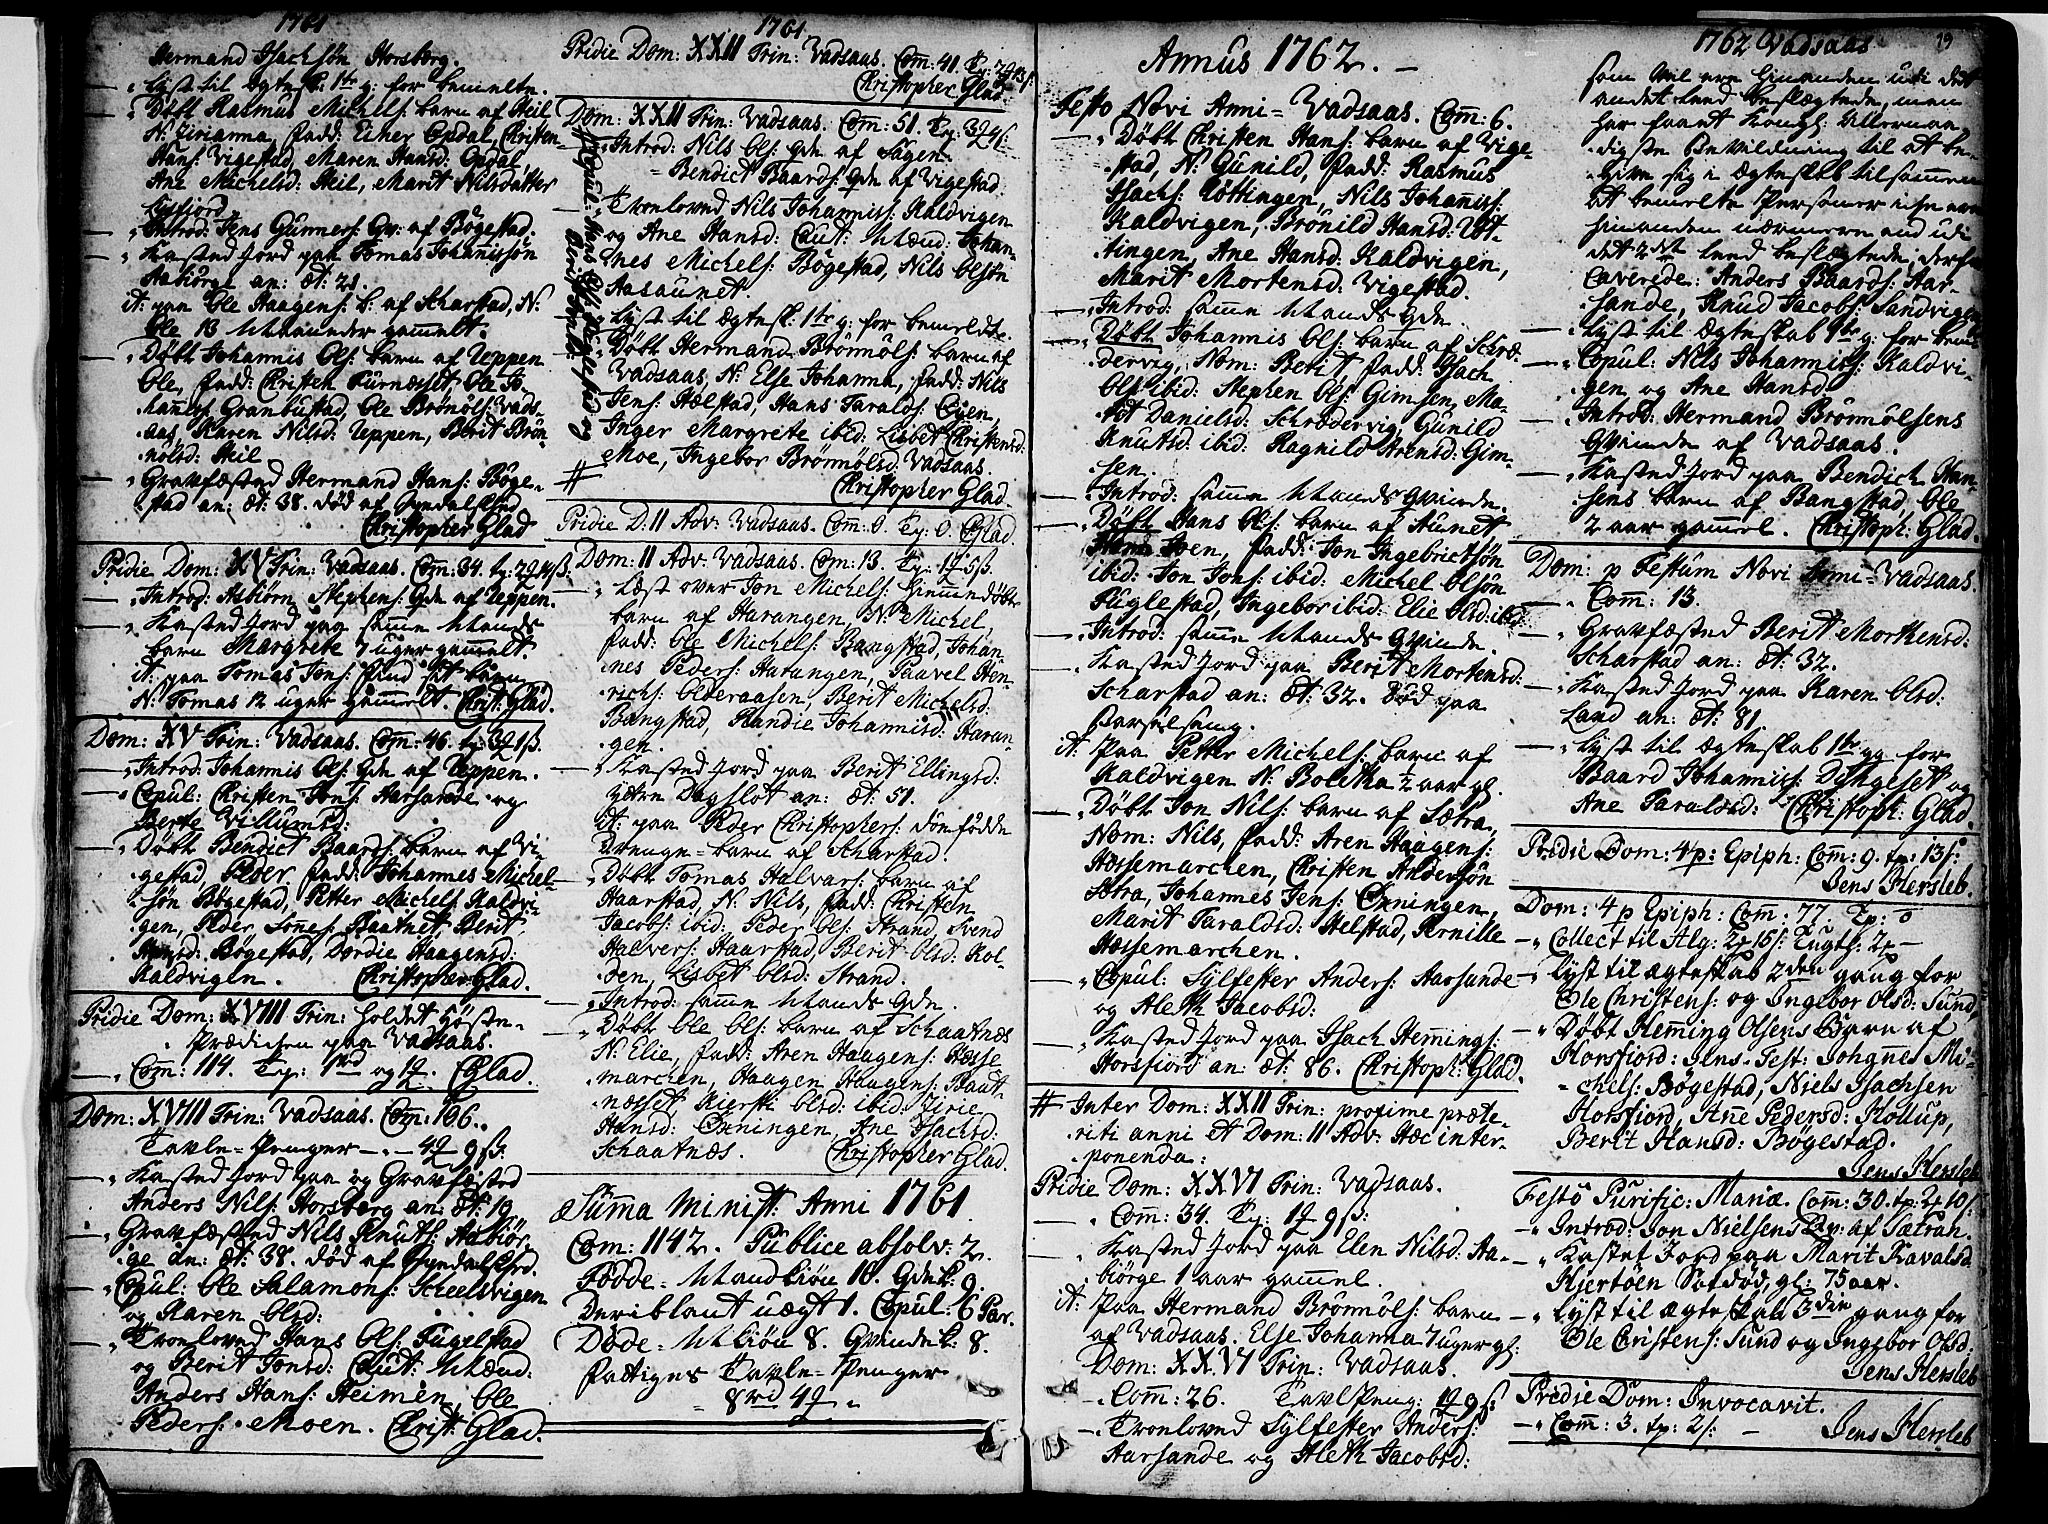 1761
Hermand Isachsøn Horsberg.
Lyst til Ægtesk: 1te g: for bemelte.
Døbt Rasmus Michels: barn af Heil
N: Zirianna, fadd: Einer Opdal, Christen
Hans: Vigestad, Maren Hansd: Opdal,
Ane Michelsd: Heil, Marit Nilsdatter
Introd: Jens Gunners: Qv: af Bøgestad.
Kasted Jord paa Tomas Johannissøn
Aabiörge an: æt: 21.
it: paa Ole Haagens: b: af Scharstad, N:
Ole 13 Maaneder gamelt.
Døbt Johannis Ols: barn af Ueppen
Ole, fadd: Christen Furnæsset Ole Jo-
hannes: Granbustad, Ole Brønøls: Vads-
aas, Karen Nilsd: Ueppen, Berit Brøn-
nolsd: Heil
Gravfæsted Hermand Hans: Bøge-
stad an: æt: 38. død af
Christopher Glad
Pridie Dom: XV Trin: Vadsaas. Com: 34. tp:
Introd: Asbiörn Stephens: Qde af Ueppen.
Kasted Jord paa samme Mands
barn Margrete 7 uger gammelt.
it: paa Tomas Jens: Sund sit barn
N: Tomas 12 uger gammelt. Christ: Glad.
Dom: XV Trin: Vadsaas. Com: 46. tp:
Introd: Johannis Ols: Qde af Ueppen.
Copul: Christen Jons: Aarsande og
Berte Villumsd:
Døbt Bendict Baards: barn af Vi-
gestad, Peder, fadd: Johannes Michel-
søn Bøgestad, Petter Michels: Kaldvi-
gen, Peder Jones: Baatnet, Berit
Hansd: Bøgestad, Dordie Haagensd:
Kaldvigen. Christopher Glad.
Pridie Dom: XVIII Trin: holdet Høste-
Prædiken paa Vadsaas.
Com: 114. Tp: 1rd og CGlad.
Dom: XVIII Trin: Vadsaas. Com: 106.
Tavle-Penger
Kasted Jord paa og Gravfæsted
Anders Nils: Horsberg an: æt: 19
Gravfæsted Nils Knuts: Aabiör-
ge an: æt: 38. død af
Copul: Ole Salamons: Scheelsvigen
og Karen Olsd:
Troelloved Hans Ols: Fuglestad
og Berit Jonsd: Caut: Mænd:
Anders Hans: Heimen, Ole
Peders: Moen. Christ: Glad.
1761
Pridie Dom: XXII Trin: Vadsaas. Com: 41.
Christopher Glad.
Dom: XXII Trin: Vadsaas. Com: 51.
Introd: Nils Ols: Qde af Fagen
Bendict Baards: Qde af Vigestad.
Troelloved Nils Johanniss: Kaldvigen
og Ane Hansd: Caut: Mænd: Johan-
nes Michels: Bøgestad, Nils Olsøn
Aasaunet.
Lyst til Ægtesk: 1te g: for bemeldte.
Døbt Hermand Brønnols: barn af
Vadsaas, N: Else Johanna, fadd: Nils
Jens: Helstad, Hans Taralds: Øyen,
Inger Margrete ibid: Lisbet Christensd:
Moe, Ingebor Brønnolsd: Vadsaas.
# Christopher Glad
Copul: Hans Ols: Fuglestad og
Berit Jonsd:
Pridie D: II Adv: Vadsaas. Com: 0. Tp: 0. CGlad.
Dom: II Adv: Vadsaas. Com: 13. Tp:
Læst over Jon Michels: hiemmedøbte
barn af Harangen, N: Michel,
fadd: Ole Michels: Bangstad, Johan-
nes Peders: Harangen, Paavel Hen-
richs: Olderaasen, Berit Michelsd:
Bangstad, Randie Johannisd: Haran-
gen.
Kasted Jord paa Berit Ellingsd:
Dagslot an: æt: 51.
it: paa Peder Christophers: dødfødde
Drenge-barn af Scharstad.
Døbt Tomas Halvars: barn af
Haarstad, N: Nils, fadd: Christen
Jacobs: ibid: Peder Ols: Strand, Svend
Halvers: Haarstad, Berit Olsd: Hol-
den, Lisbet Olsd: Strand.
Introd: samme Mands Qde.
Døbt Ole Ols: barn af Schaatnæs
N: Elie, fadd: Aren Haagens: Hæsse-
marchen, Haagen Haagens: Baat-
næsset, Kiersti Olsd: ibid: Zirie
Hansd: Øxningen, Ane Isachsd:
Schaatnæs. Christopher Glad.
Summa Minist: Anni 1761
Com: 1142. Publice absolv: 2.
Fødde: Mandkiön 16. Qdek: 9.
Deriblant uægt 1. Copul: 6 Par.
Døde: Mkiön 8. Qvindek: 8.
Fattiges Tavle-Penger
8rd
Annus 1762.
Festo Novi Anni-Vadsaas. Com: 6.
Døbt Christen Hans: barn af Vige-
stad, N: Gunild, fadd: Rasmus
Isachs: Uttingen, Nils Johannis:
Kaldvigen, Brønild Hansd: Ut-
tingen, Ane Hansd: Kaldvigen,
Marit Mortensd: Vigestad.
Introd: samme Mands Qde.
Døbt Johannis Ols: barn af Schræ-
dervig, Nom: Berit fadd: Isach
Ols: ibid: Stephen Ols: Gimsen, Ma-
rit Danielsd: Schrædervig, Gunild
Knutsd: ibid: Ragnild Arensd: Gim-
sen.
Introd: samme Mands Qvinde.
Døbt Hans Ols: barn af Aunet,
Joen, fadd: Jon Ingebrictsøn
ibid: Jon Jons: ibid: Michel Olsøn
Fuglestad, Ingebor ibid: Elie Olsd: ibid
Introd: samme Mands Qvinde.
Kasted Jord paa Berit Mortensd:
Scharstad an: æt: 32. Død paa
Barselseng.
it: Paa Petter Michels: barn af
Kaldvigen N: Boletha ½ aar gl.
Døbt Jon Nils: barn af Sætra,
Nom: Nils, fadd: Aren Haagens:
Hæssemarchen, Christen Andersøn
Sætra, Johannes Jens: Øxningen,
Marit Taraldsd: Helstad, Pernille
Hæssemarchen.
Copul: Sylfester Anders: Aarsande
og Aleth Jacobsd:
Kasted Jord paa Isach Hemings:
Horsfiord an: æt: 86. Christoph: Glad.
# Inter Dom: XXII Trin: proxime præte-
riti anni et Dom: II Adv: Hæc inter-
ponenda:
Pridie Dom: XXVI Trin: Vadsaas.
Com: 34. Tp:
Kasted Jord paa Elen Nilsd: Aa-
biörge 1 aar gammel.
it: Paa Hermand Brønnols: barn
af Vadsaas. Else Johanna 7 uger gl:
Dom: XXVI Trin: Vadsaas.
Com: 26. Tavl Peng:
Troelloved Sylfester Anders:
Aarsande og Aleth Jacobsd:
1762 Vadsaas 19
som vel ere hinanden udi det
andet Leed beslægtede, men
har faaet Kongl: Allernaa-
digste Bevildning til at be-
give sig i Ægteskab tilsammen
at bemelte Personer ere
hinanden nærmere end udi
det 2det Leed beslægtede, derfor
caverede: Anders Baards: Aar-
sande, Knud Jacobs: Sandvigen
Lyst til Ægteskab 1te g: for bem:
Copul: Nils Johannis: Kaldvi-
gen og Ane Hansd:
Introd: Hermand Brønnolsens
Qvinde af Vadsaas.
Kasted Jord paa Bendich Han-
sens barn af Bangstad, Ole
2 aar gammel. Christoph: Glad.
Dom: p Festum Novi Anni-Vadsaas.
Com: 13.
Gravfæsted Berit Morthensd:
Scharstad an: æt: 32.
Kasted Jord paa Karen Olsd:
Land an: æt: 81.
Lyst til Ægteskab 1te g: for
Baard Johanniss: og
Ane Taraldsd: Christoph: Glad.
Pridie Dom: 4 p: Epiph: Com: 9. tp: 13s:
Jens Hersleb.
Dom: 4 p Epiph: Com: 77. Tp: 0
Collect til Alg: 15s: Tugth:
Lyst til ægteskab 2den gang for
Ole Christens: og Ingebor Olsd: Sund,
Døbt Hemming Olsens Barn af
Horsfiord: Jens. Test: Johannes Mi-
chels: Bøgestad, Niels Isachsen
Horsfiord, Ane Pedersd: Hollup,
Berit Hansd: Bøgestad.
Jens Hersleb
Festo Purific: Mariæ. Com: 30. tp: 10s:
Introd: Jon Nielsens Qv: af Sætran.
Kastet Jord paa Marit Havaldsd.
Hjertøen Sotdød, gl: 75 aar.
Lyst til ægteskab 3die gang for
Ole Christens: Sund og Ingebor Olsd:
Jens Hersleb
Pridie Dom: Invocavit.
Com: 3. tp: 2s:
Jens Hersleb